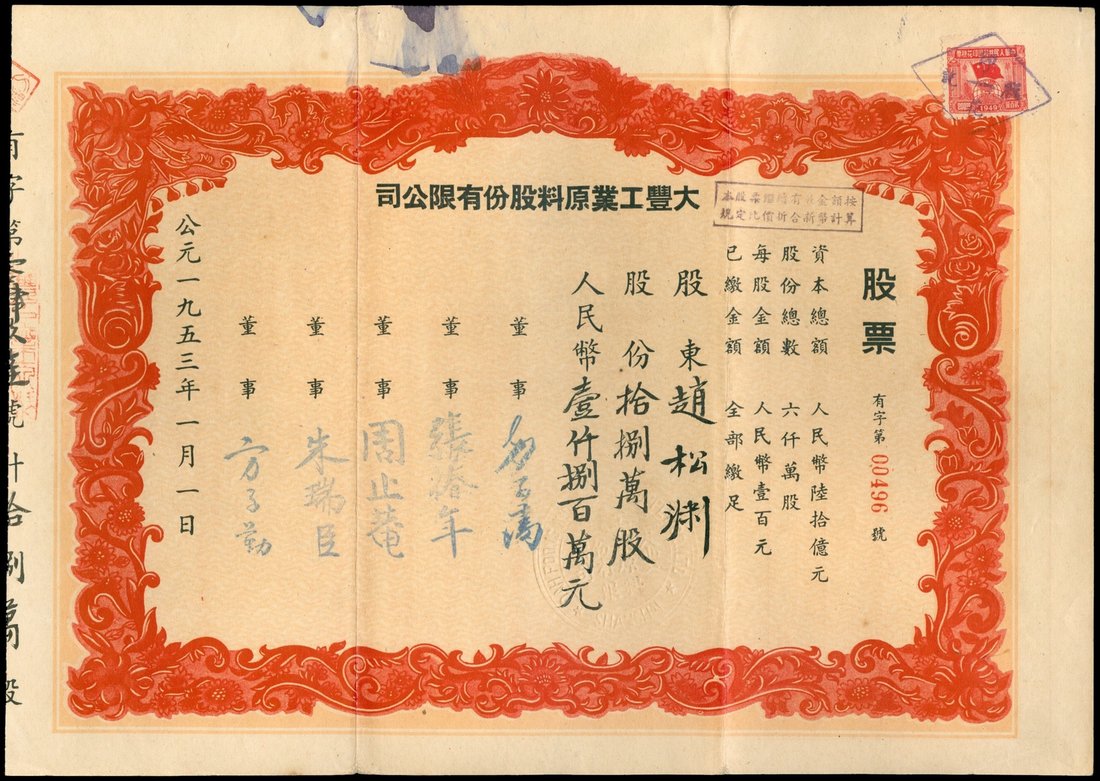 大豐工業原料股份有限公司
本股票 金額按
規定比價折合新幣計算
股票
有字第00496號
資本總額 人民幣陸拾億元
股份總數 六仟萬股
每股金額 人民幣壹百元
已繳金額 全部繳足
股東趙松渊
股份拾捌萬股
人民幣壹仟捌百萬元
董事
董事 張 年
董事 周止菴
董事 朱瑞臣
董事 方子勤
公元一九五三年一月一日
有字第零 肆玖 號計拾捌萬股
1949
SHANGHAI